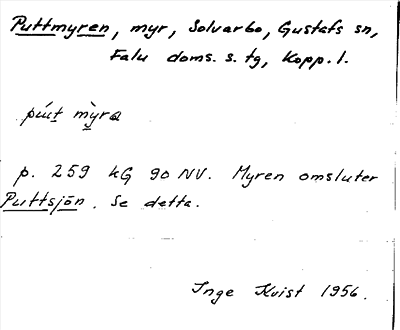 Puttmyren, myr, Solvarbo, Gustafs sn,
Falu doms. s. tg, Kopp. l.
pút mỳra
p. 259 kG 90 NV. Myren omsluter
Puttsjön. Se detta.
Inge Kvist 1956.